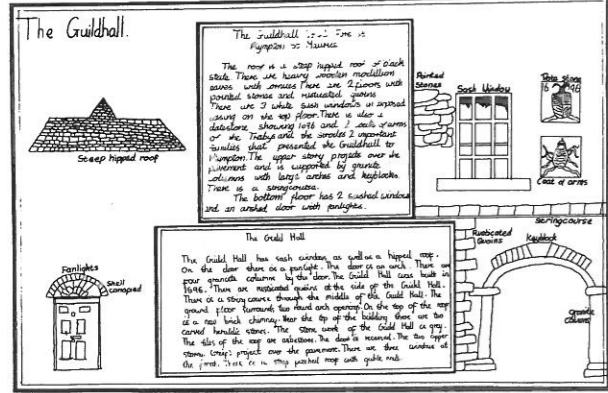 The Guildhall.
The Guildhall Fore is
Plympton St Maurice
The roof is a steep hipped roof of black
slate. There are heavy wooden modillion
eaves with There are 2 floors with
pointed stones and rusticated quoins
There are 3 white sash windows in exposed
on the top floor. There is also a
datestone showing 1696 and 2 coats of arms
of the Trebys and the Strodes 2 important
families that presented the Guildhall to
Plympton. The upper story projects over the
pavement and is supported by granite
columns with large arches and keyblocks.
There is a stringcourse.
The bottom floor has 2 sashed windows
and an arched door with fanlights.
Steep hipped roof
Pointed
Stones
Sash Window
Date stone
16 96
Coat of arms
Stringcourse
Rusticated
Quoins
Keyblock
granite
columns
Fanlights
Shell
canopied
The Guild Hall
The Guild Hall has sash windows as well as a hipped roof.
On the door there is a fanlight. The door is an arch. There are
four granite columns by the door. The Guild Hall was built in
1696. There are rusticated quoins at the side of the Guild Hall.
There is a string course through the middle of the Guild Hall. The
ground floor surrounds two round arch openings. On the top of the roof
is a new brick chimney. Near the top of the building there are two
carved heraldic stones. The stone work of the Guild Hall is grey.
The tiles of the roof are asbestose. The door is recessed. The two upper
storey project over the pavement. There are three windows at
the front. There is a steep pitched roof with gable ends.